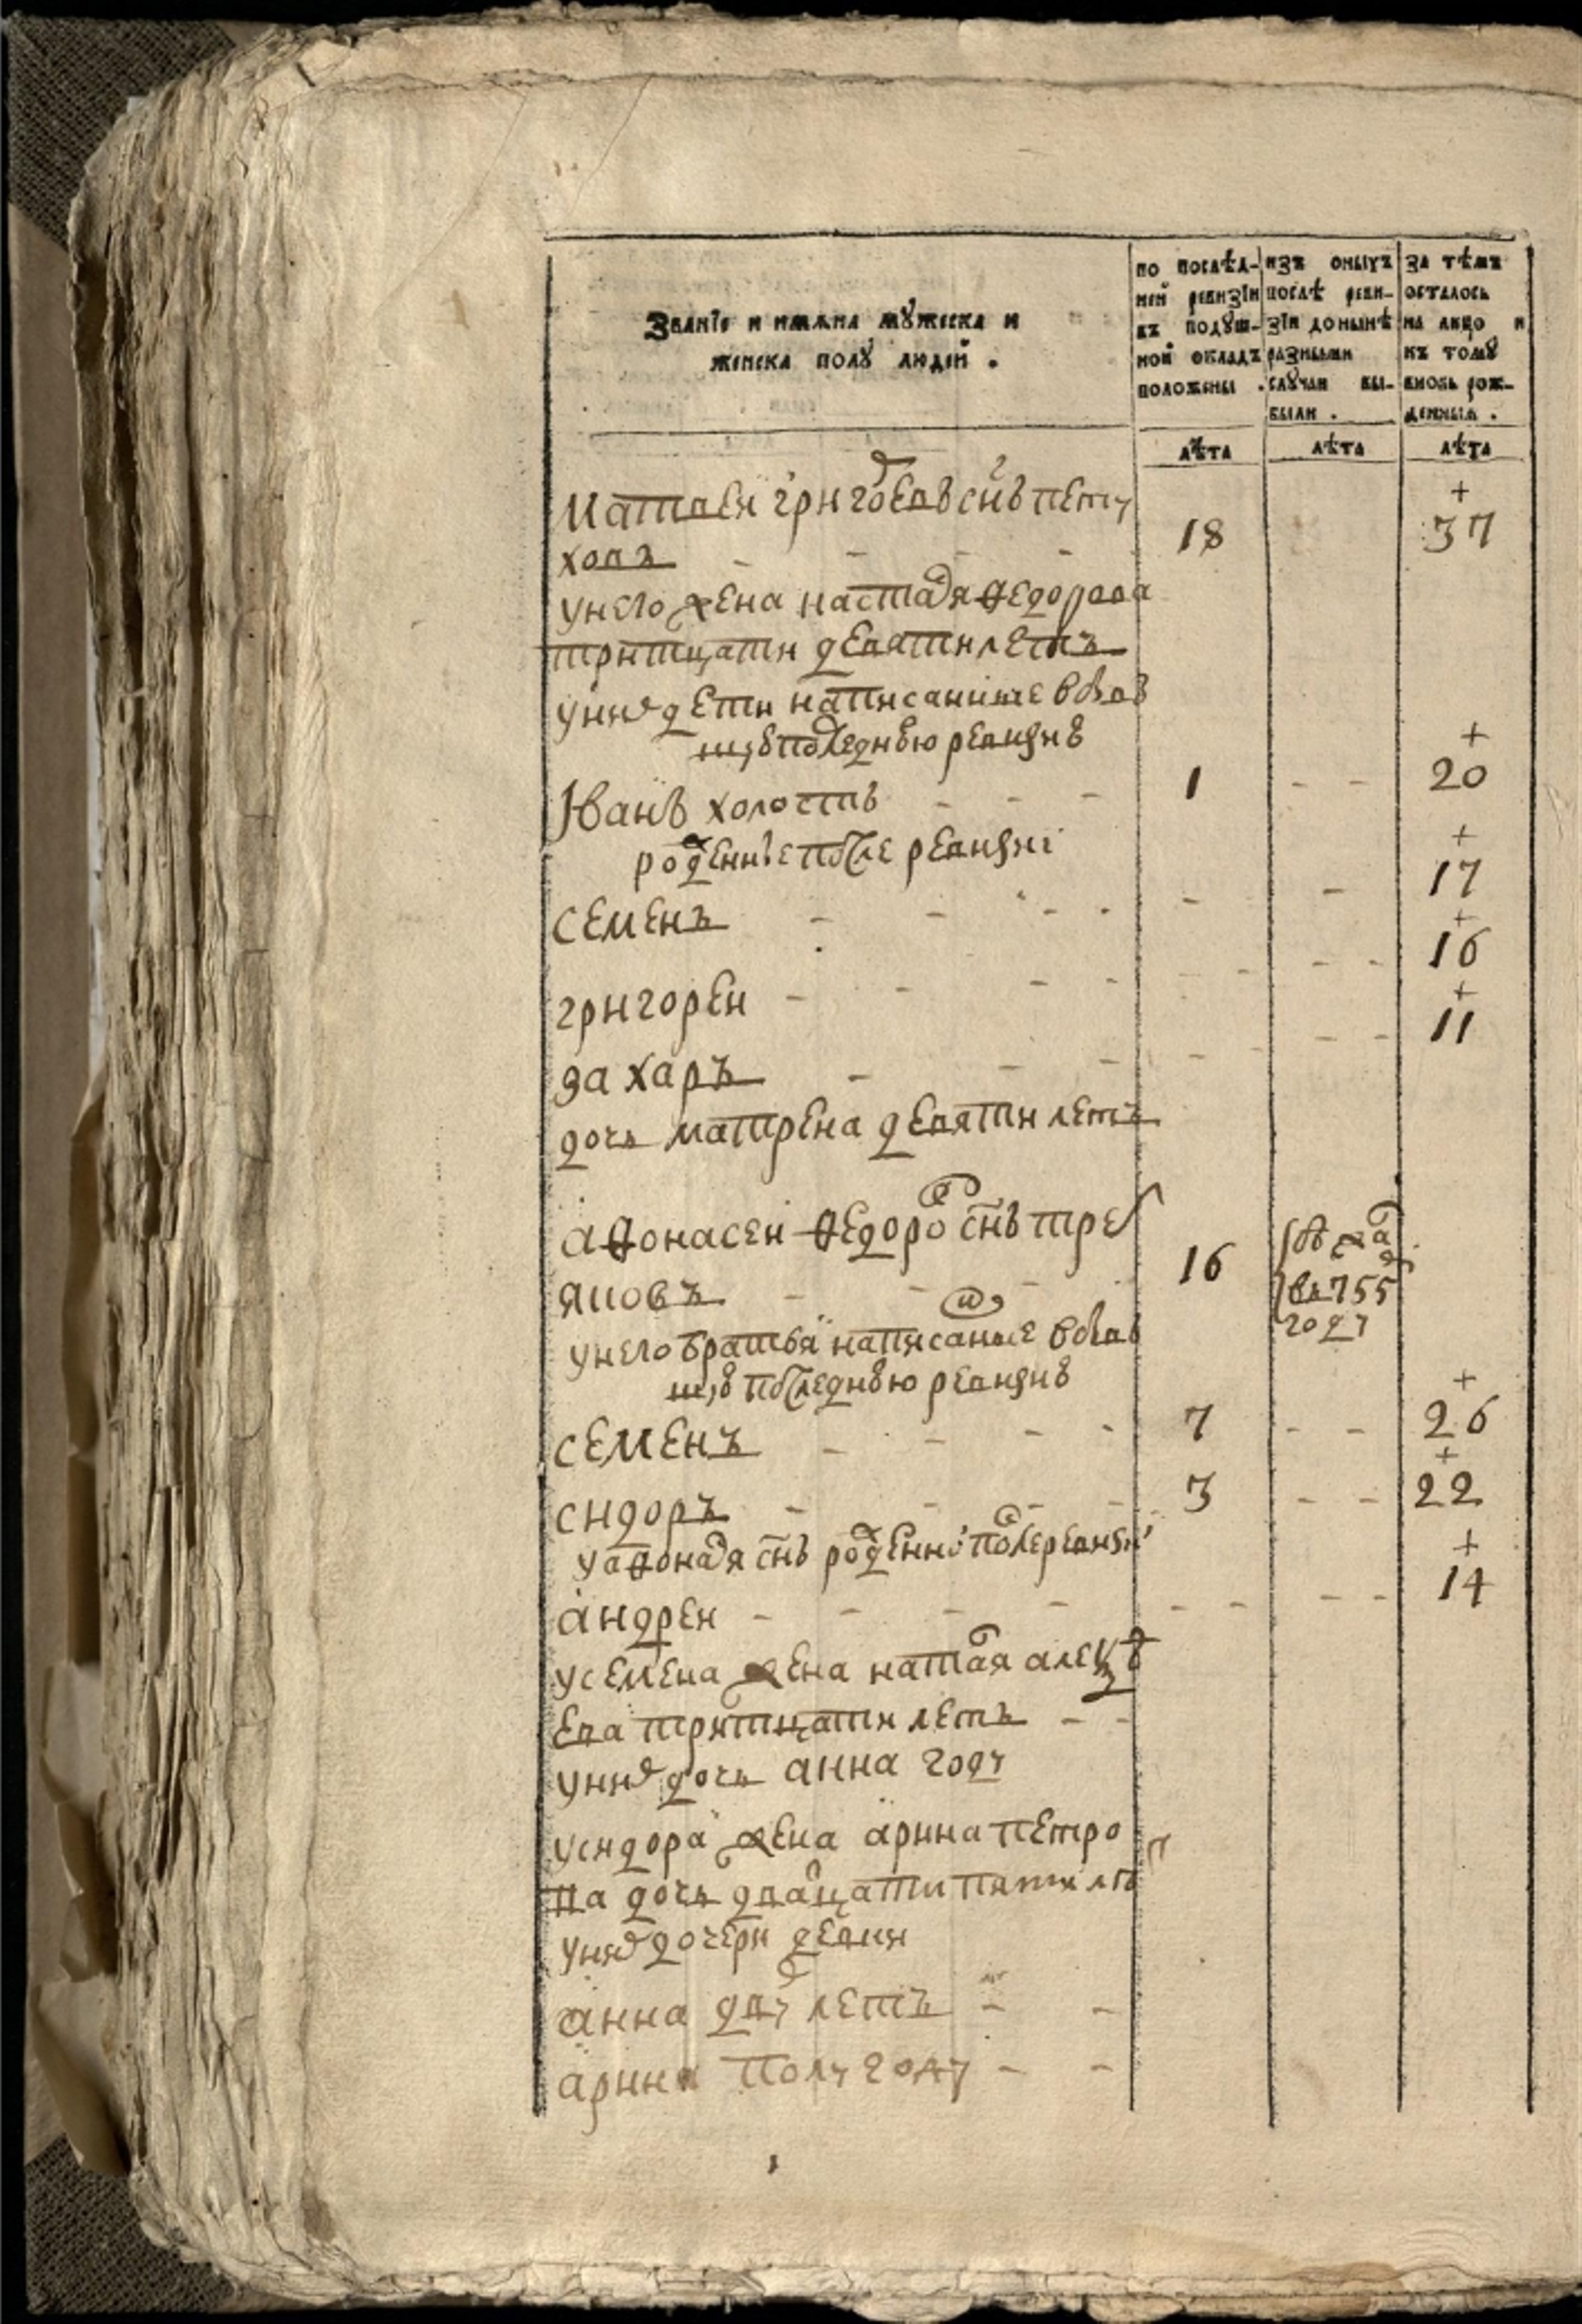 Званїе и имѧна мꙋжеска и
женска полꙋ людей .
по послѣд-
ней ревизїи
въ подꙋш-
ной окладъ
положены .
изъ оныхъ
послѣ реви-
зїи донынѣ
разными
слꙋчаи вы-
были .
за тѣмъ
осталось
на лицо и
къ томꙋ
вновь рож-
денныѧ .
лѣта
лѣта
лѣта
матвеи григоревъ снъ пету
ховъ - - - - 18 37
у него жена настася федорова
тритцати девяти летъ
у них дети написанные въ быв
шую последнюю ревизию
Иванъ холостъ - - - 1 - - 20
рожденные после ревизиі
семенъ - - - - - - 17
григореи - - - - - - - - 16
захаръ - - - - - - 11
дочь матрена девяти летъ
афонасеи федоров снъ тре
яповъ - - - 16
въ 755
году
у него братья написанные въ быв
шую последнюю ревизию
семенъ - - - - 7 - - 26
сидоръ - - - - 3 - - 22
у афонася снъ рожденной после ревизиі
андреи - - - - - - - - 14
у семена жена наталя алекѣ
ева тритцати летъ - -
у них дочь анна году
у сидора жена арина петро
ва дочь двацати пяти летъ
у них дочери девки
анна дву летъ - -
арина полугоду - -